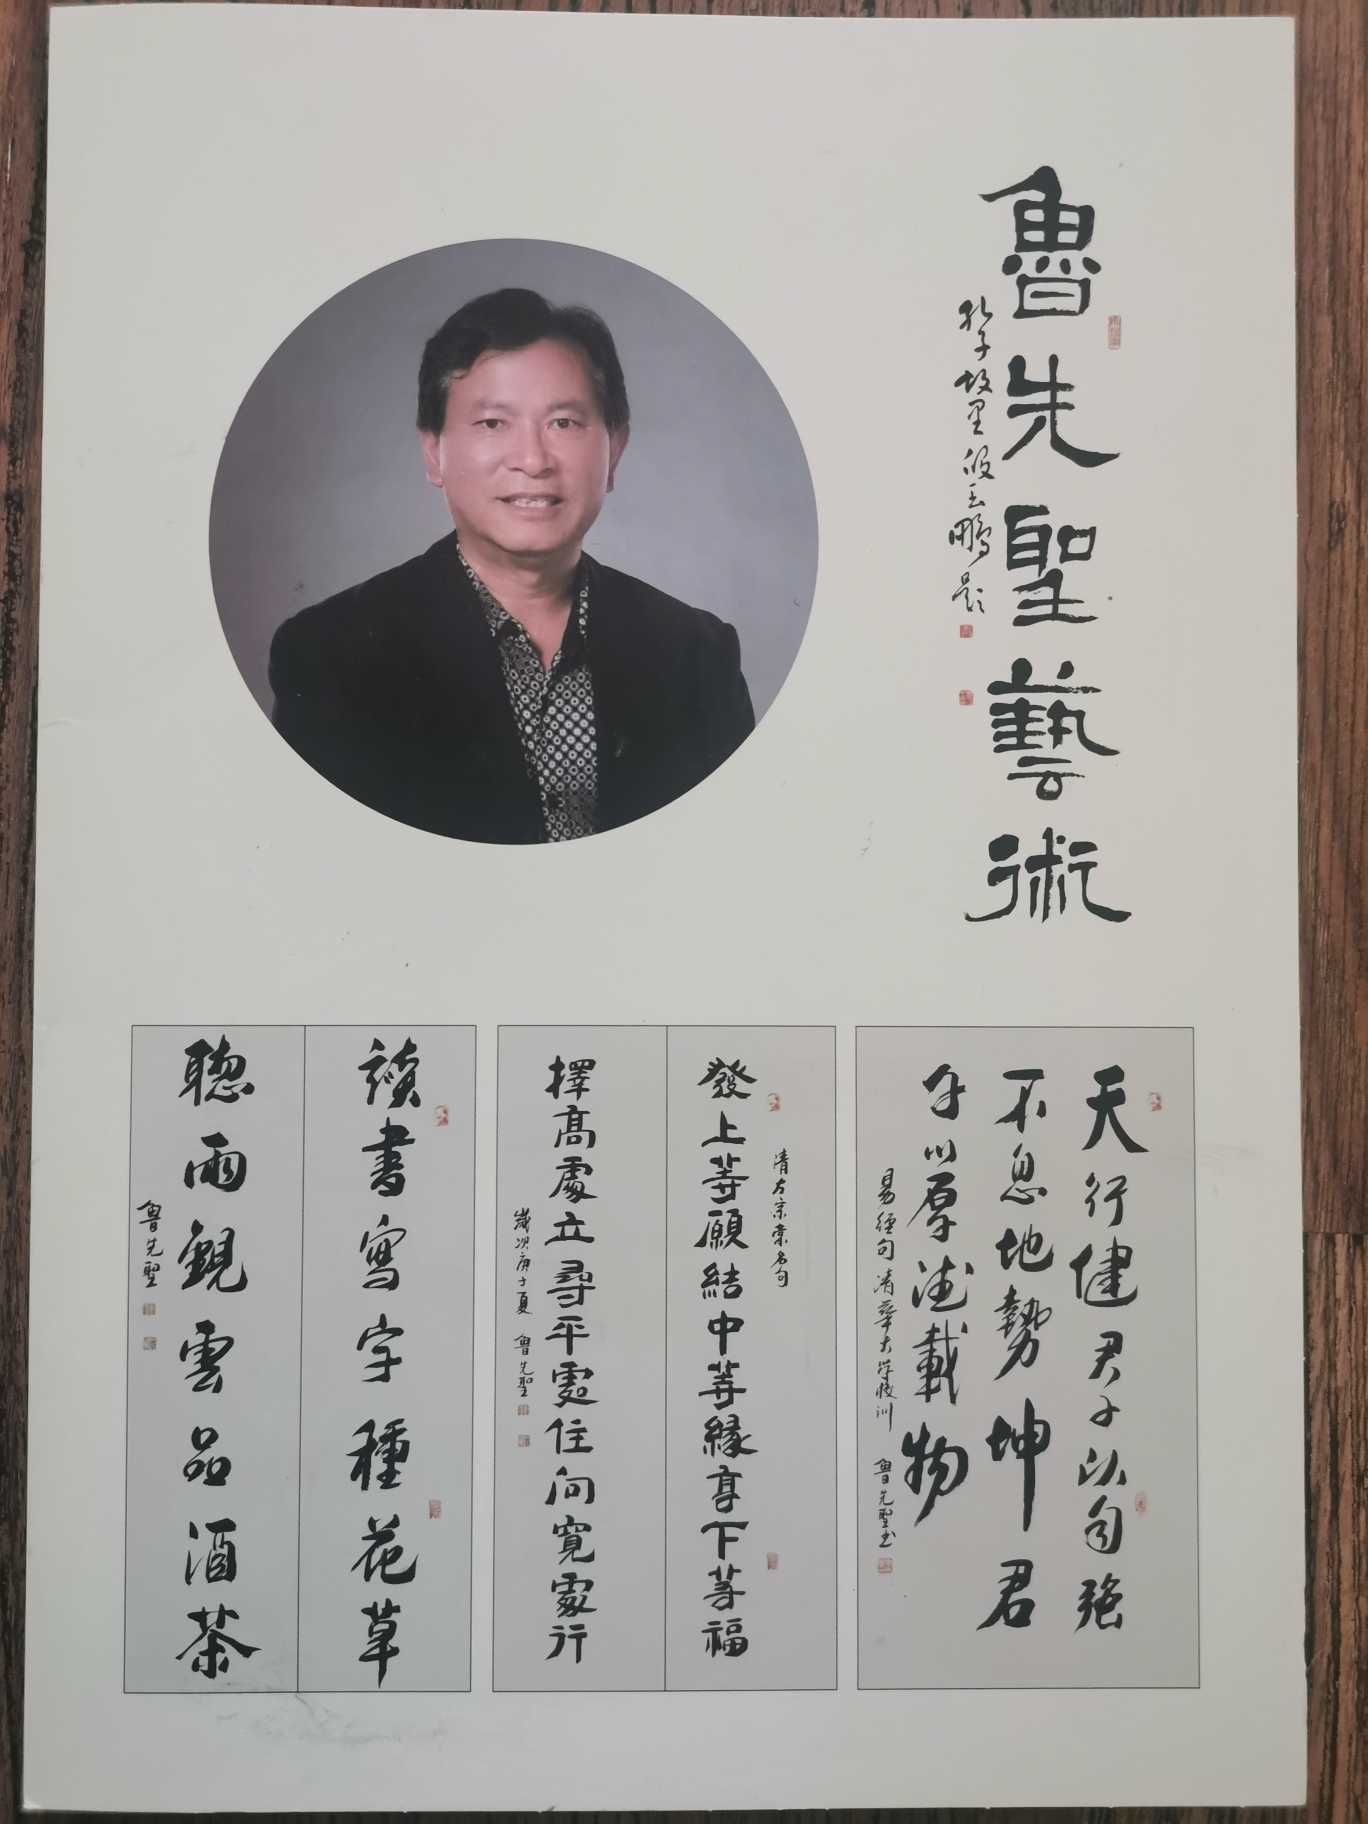 魯先聖藝術
孔子故里段玉鵬題
天行健君子以自強
不息地勢坤君
子以厚德載物
易經句清華大学校训 魯先聖书
清左宗棠名句
發上等願結中等緣享下等福
擇高處立尋平處住向寬處行
歲次庚子夏 魯先聖
讀書寫字種花草
聽雨觀雲品酒茶
魯先聖